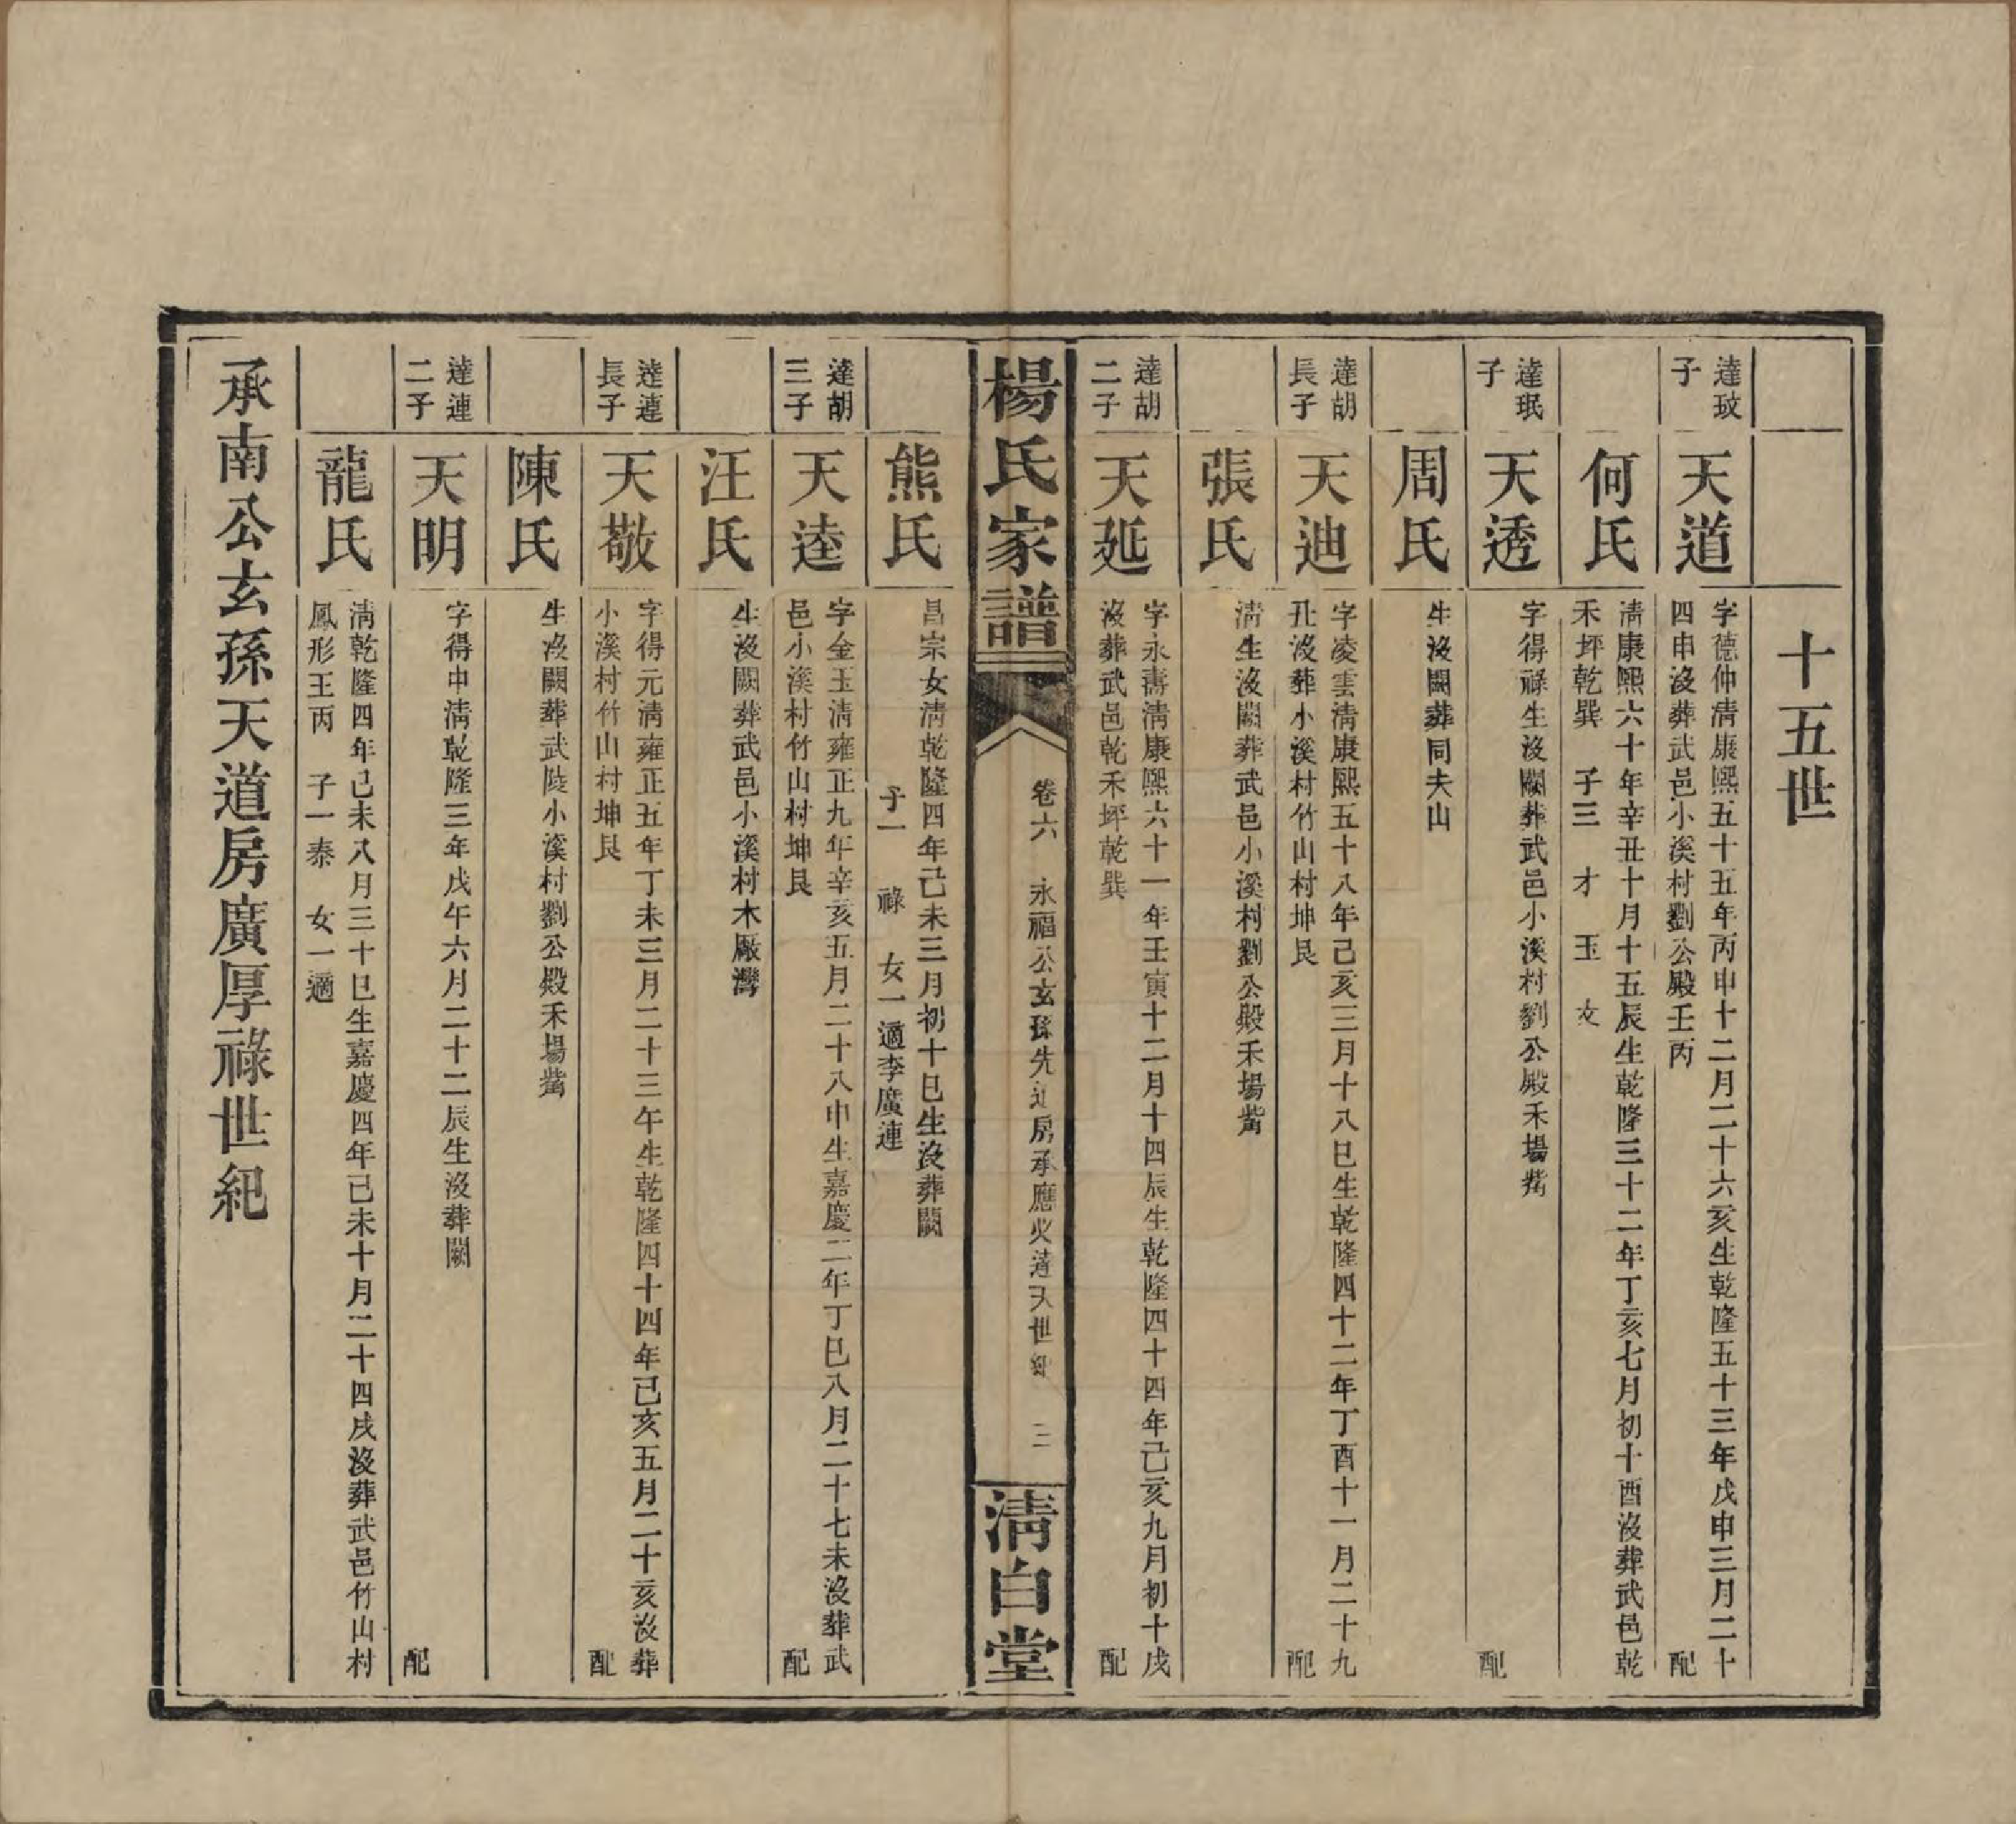 十五世
達玟
子
天道
字德仲清康熙五十五年丙申十二月二十六亥生乾隆五十三年戊申三月二十
四申沒葬武邑小溪村劉公殿壬丙 配
何氏
清康熙六十年辛丑十月十五辰生乾隆三十二年丁亥七月初十酉沒葬武邑乾
禾坪乾巽 子三 才 玉 文
達珉
子
天透
字得祿生沒闕葬武邑小溪村劉公殿禾場嘴
配
周氏
生沒闕葬同夫山
達胡
長子
天迪
字凌雲清康熙五十八年己亥三月十八巳生乾隆四十二年丁酉十一月二十九
丑沒葬小溪村竹山村坤艮 配
張氏
清生沒闕葬武邑小溪村劉公殿禾場嘴
達胡
二子
天延
字永壽清康熙六十一年壬寅十二月十四辰生乾隆四十四年己亥九月初十戌
沒葬武邑乾禾坪乾巽 配
楊氏家譜
卷六 永福公玄孫先進房承應火達天世紀 二
清白堂
熊氏
昌宗女清乾隆四年己未三月初十巳生沒葬闕
子一 祿 女一適李廣連
達胡
三子
天逵
字金玉清雍正九年辛亥五月二十八申生嘉慶二年丁巳八月二十七未沒葬武
邑小溪村竹山村坤艮 配
汪氏
生沒闕葬武邑小溪村木厰灣
達連
長子
天敬
字得元清雍正五年丁未三月二十三午生乾隆四十四年己亥五月二十亥沒葬
小溪村竹山村坤艮 配
陳氏
生沒闕葬武陵小溪村劉公殿禾場嘴
達連
二子
天明
字得中清乾隆三年戊午六月二十二辰生沒葬闕
配
龍氏
清乾隆四年己未八月三十巳生嘉慶四年己未十月二十四戌沒葬武邑竹山村
鳳形王丙 子一泰 女一適
承南公玄孫天道房廣厚祿世紀